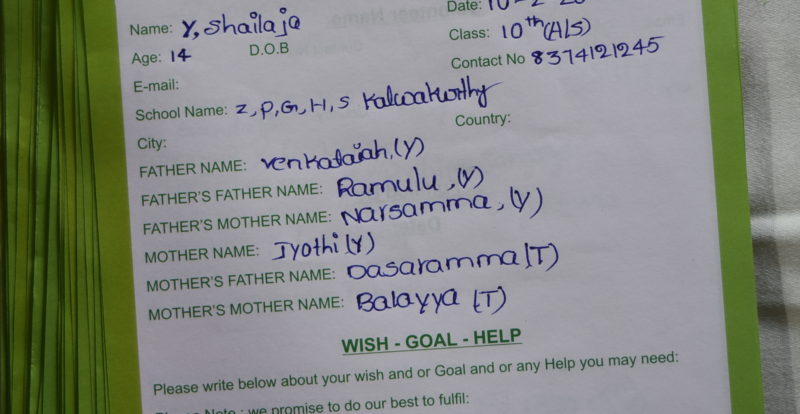 Name: Y, Shailaja Date: 10-2-
Age: 14 D.O.B Class: 10th (A/S)
E-mail: Contact No 8374121245
School Name: Z, P, G, H, S Kalwakurthy
City: Country:
FATHER NAME: Venkataiah, (Y)
FATHER'S FATHER NAME: Ramulu, (Y)
FATHER'S MOTHER NAME: Narsamma, (Y)
MOTHER NAME: Jyothi (Y)
MOTHER'S FATHER NAME: Dasaramma (T)
MOTHER'S MOTHER NAME: Balayya (T)
WISH - GOAL - HELP
Please write below about your wish and or Goal and or any Help you may need:
Note : we promise to do our best to fulfil: